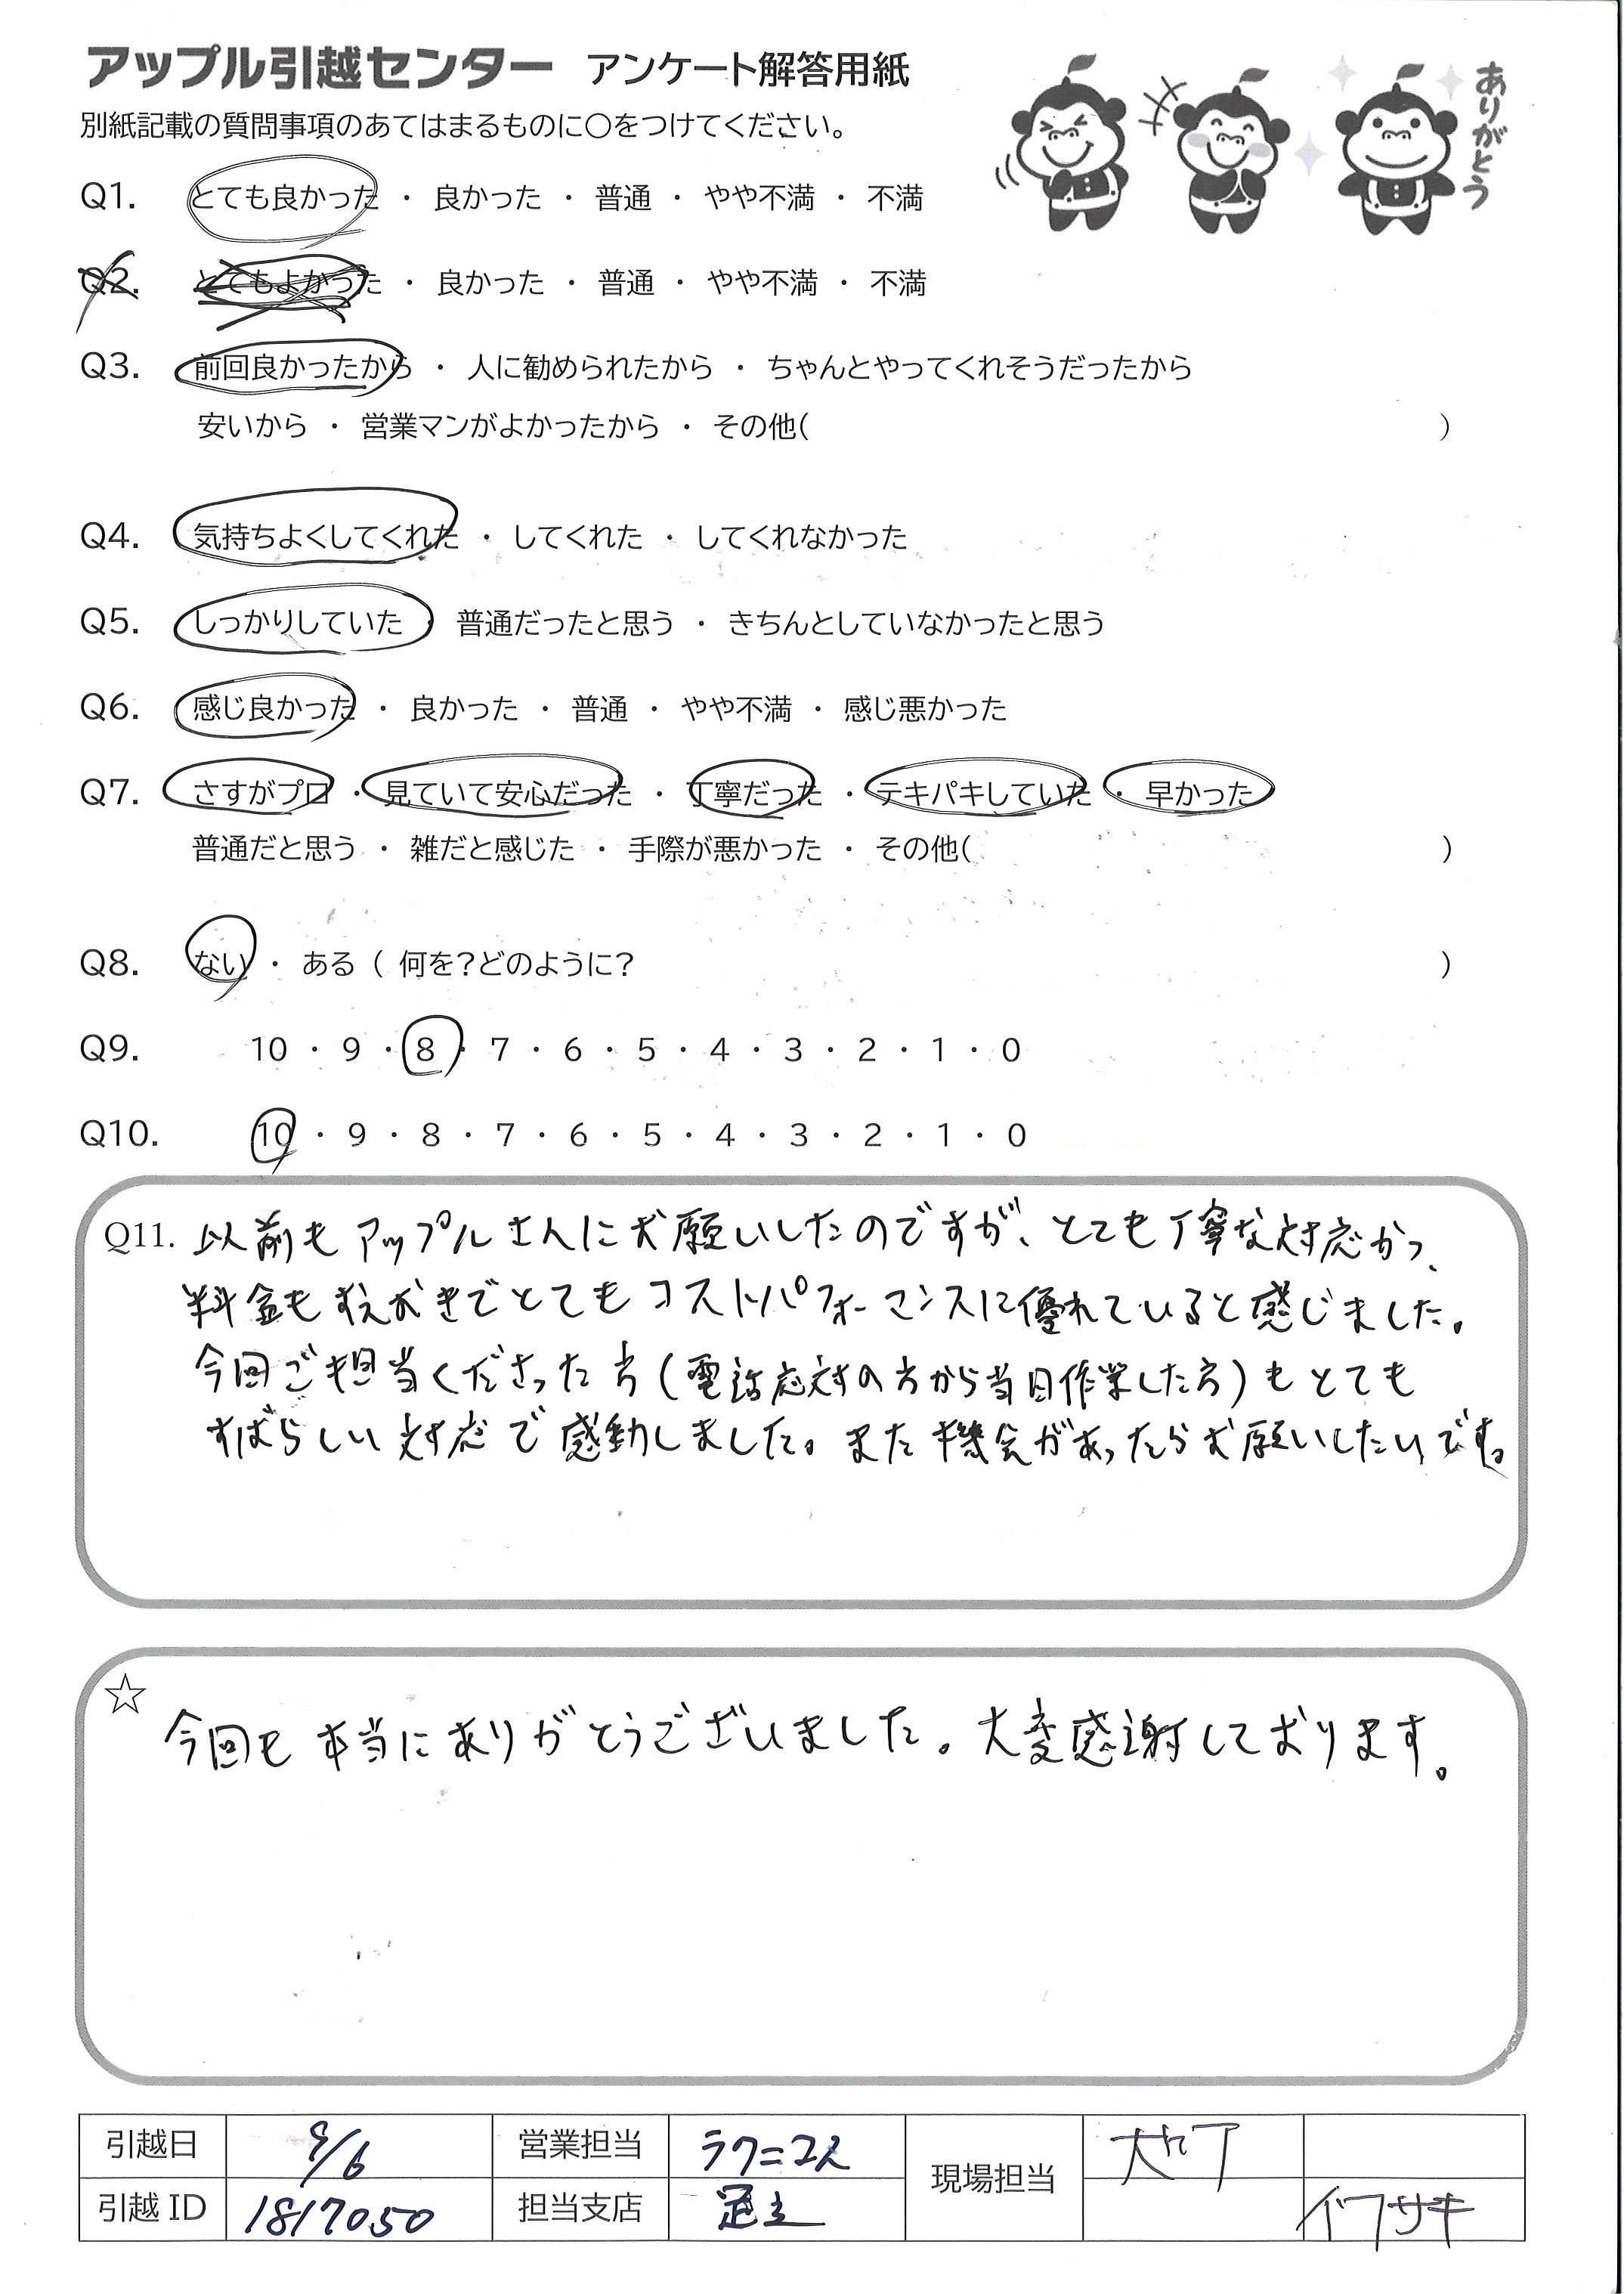 アップル引越センター アンケート解答用紙
ありがとう
別紙記載の質問事項のあてはまるものに○をつけてください。
Q1. とても良かった ・ 良かった ・ 普通 ・ やや不満 ・ 不満
Q2. とてもよかった ・ 良かった ・ 普通 ・ やや不満 ・ 不満
Q3. 前回良かったから ・ 人に勧められたから ・ ちゃんとやってくれそうだったから
安いから ・ 営業マンがよかったから ・ その他( )
Q4. 気持ちよくしてくれた ・ してくれた ・ してくれなかった
Q5. しっかりしていた ・ 普通だったと思う ・ きちんとしていなかったと思う
Q6. 感じ良かった ・ 良かった ・ 普通 ・ やや不満 ・ 感じ悪かった
Q7. さすがプロ ・ 見ていて安心だった ・ 丁寧だった ・ テキパキしていた ・ 早かった
普通だと思う ・ 雑だと感じた ・ 手際が悪かった ・ その他( )
Q8. ない ・ ある ( 何を?どのように? )
Q9. 10 ・ 9 ・ 8 ・ 7 ・ 6 ・ 5 ・ 4 ・ 3 ・ 2 ・ 1 ・ 0
Q10. 10 ・ 9 ・ 8 ・ 7 ・ 6 ・ 5 ・ 4 ・ 3 ・ 2 ・ 1 ・ 0
Q11. 以前もアップルさんにお願いしたのですが、とても丁寧な対応かつ、
料金もすえおきでとてもコストパフォーマンスに優れていると感じました。
今回ご担当くださった方(電話応対の方から当日作業した方)もとても
すばらしい対応で感動しました。また機会があったらお願いしたいです。
☆
今回も本当にありがとうございました。大変感謝しております。
引越日 9/6 営業担当 ラクニコス 現場担当
引越ID 1817050 担当支店 足立 イワサキ